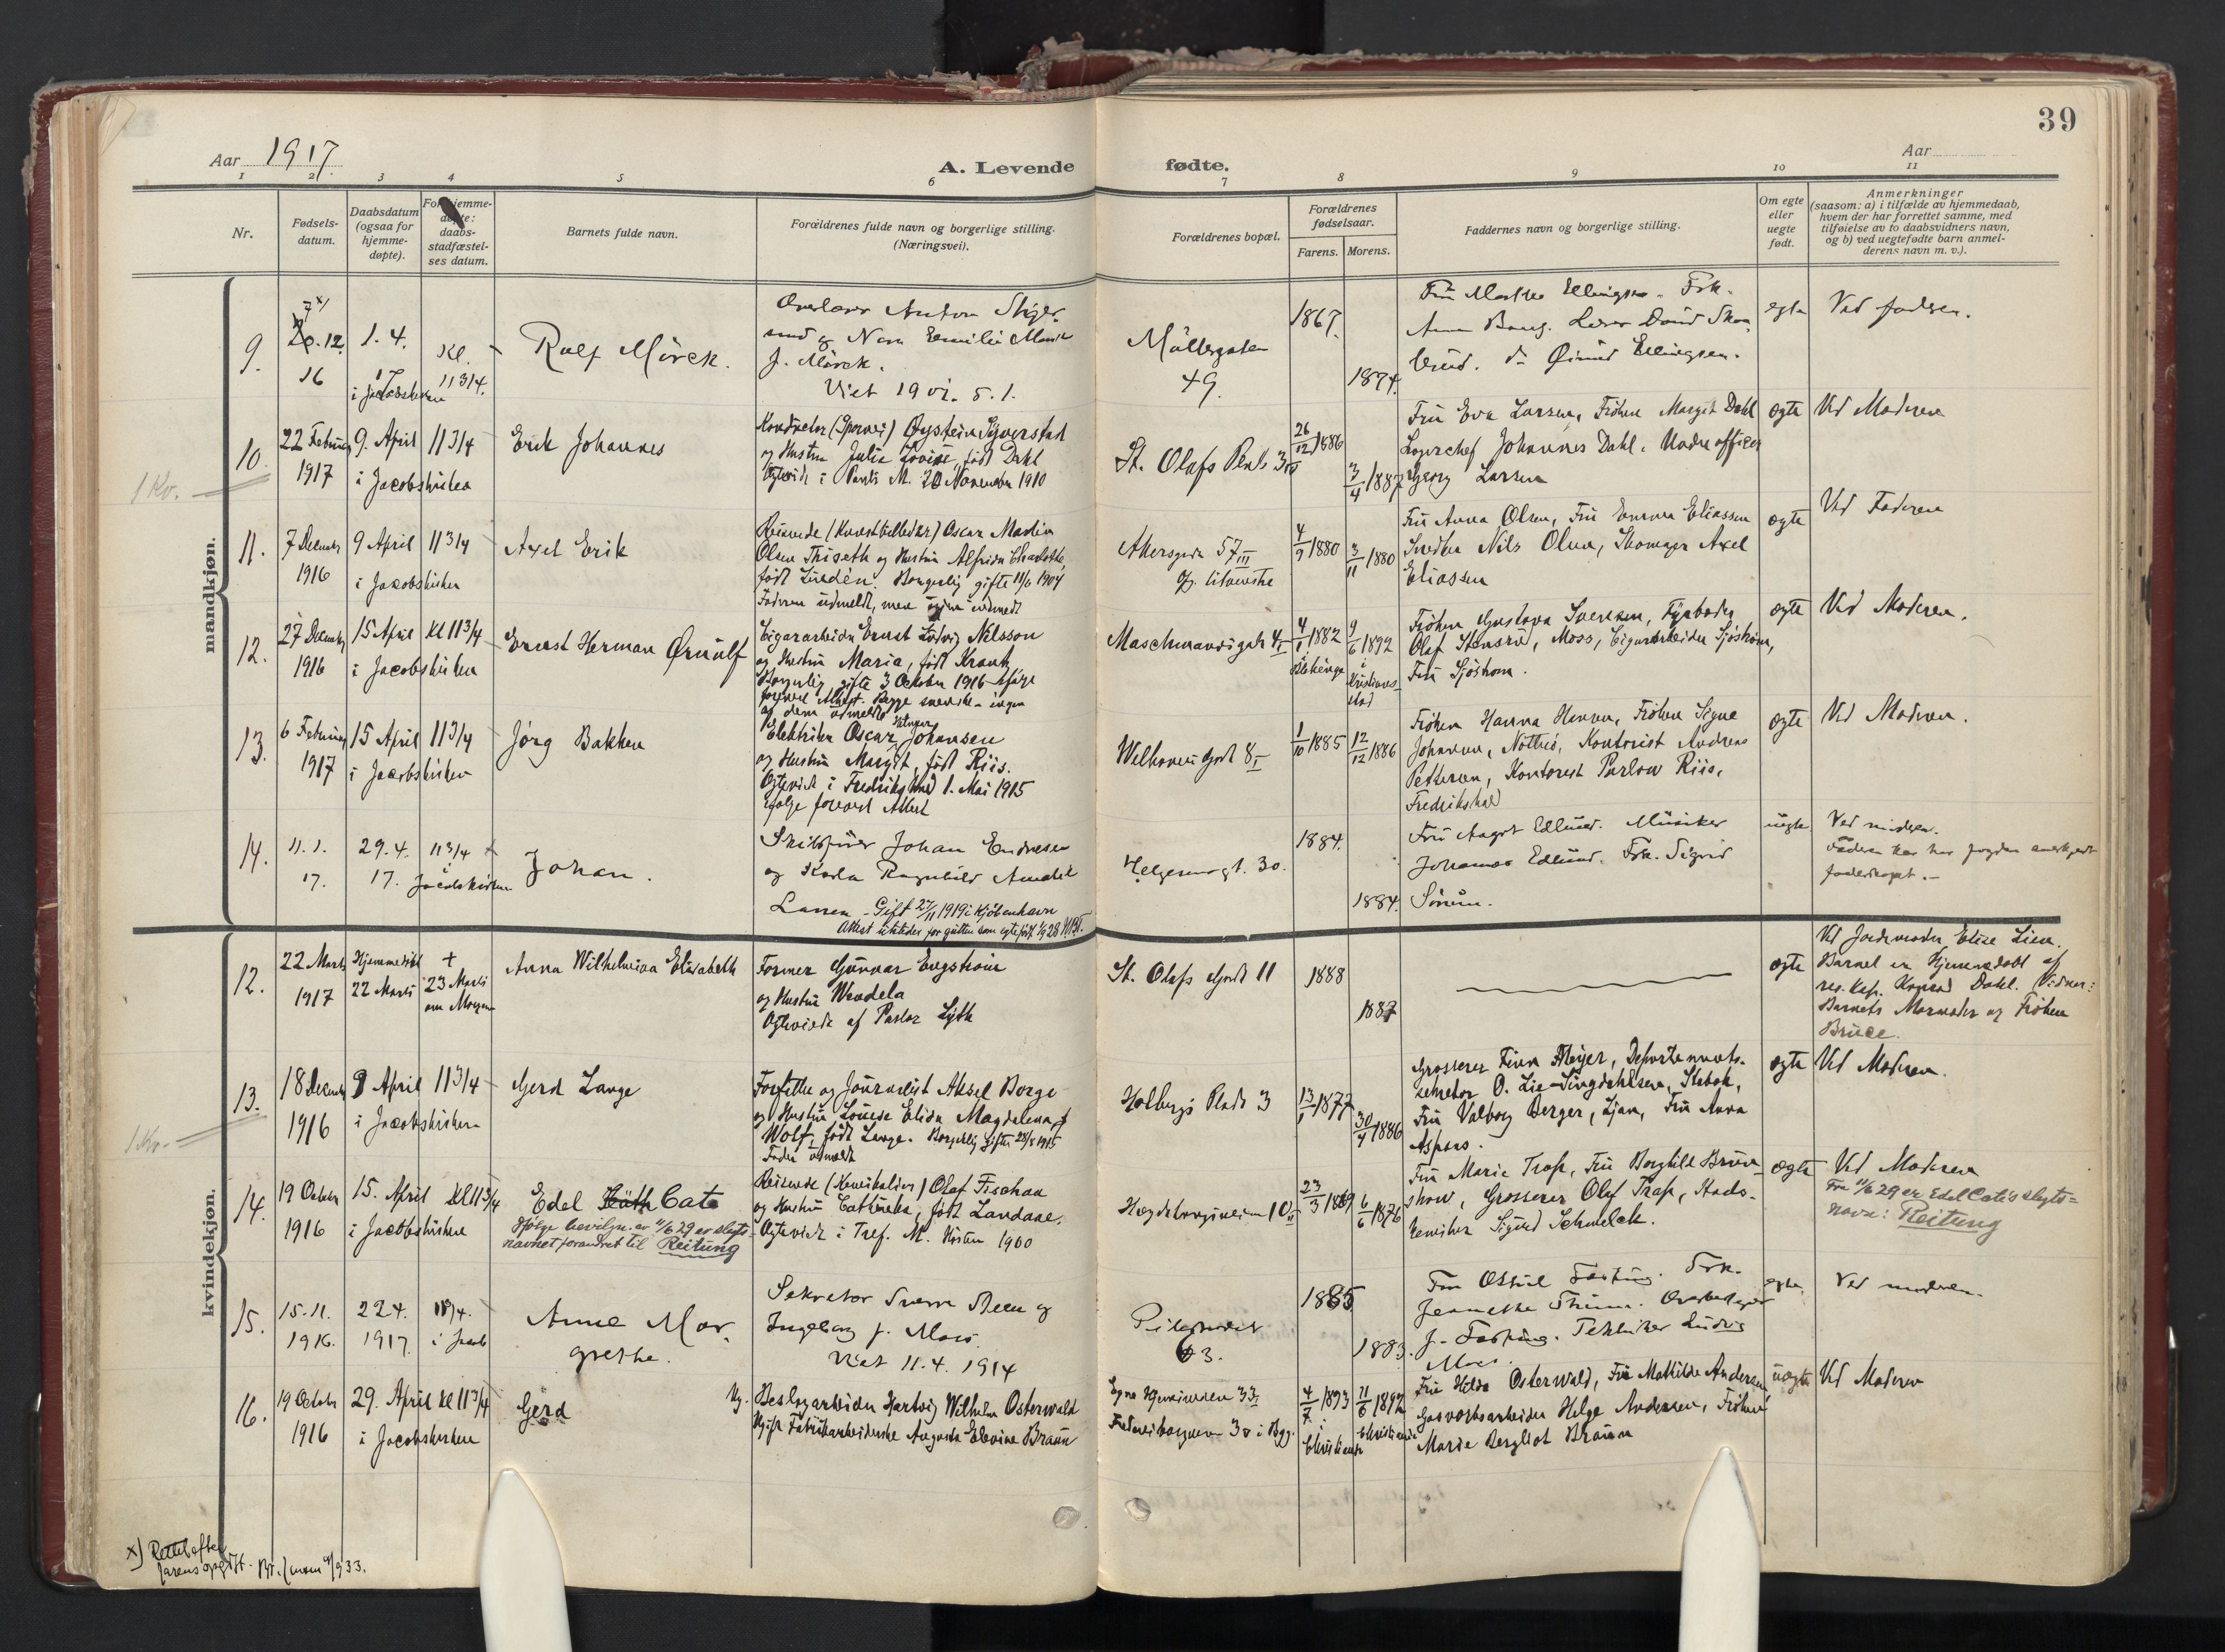 39
Aar 1917.
A. Levende
fødte.
Aar
1 2 3 4 5 6 7 8 9 10 11
Nr.
Fødsels-
datum.
Daabsdatum
(ogsaa for
hjemme-
døpte).
For hjemme-
døpte:
daabs-
stadfæstel-
ses datum.
Barnets fulde navn.
Forældrenes fulde navn og borgerlige stilling.
(Næringsvei).
Forældrenes bopæl.
Forældrenes
fødselsaar.
Farens. Morens.
Faddernes navn og borgerlige stilling.
Om egte
eller
uegte
født.
Anmerkninger
(saasom: a) i tilfælde av hjemmedaab,
hvem der har forrettet samme, med
tilføielse av to daabsvidners navn,
og b) ved uegtefødte barn anmel-
derens navn m. v.).
mandkjøn.
9.
12.
16
1. 4.
17
i Jacobskirken
Kl.
11 3/4.
Rolf Mörck.
Anton
og
f. Mörck.
Viet 1901. 5. 1.
Möllergaten
49.
1867.
1874.
Fru Ellingsen. Frk.
Ellingsen.
egte
Ved faderen.
1 Kv.
10.
22 Februar
1917
9. April
i Jacobskirken
11 3/4
Erik Johannes
Konduktor (Sporvei) Øystein Syverstad
og Hustru Julie Lovise, født Dahl
Egteviet i Pauls M. 20 November 1910
St. Olafs Plads 3 III
26/12 1886
3/4 1887
Fru Eva Larsen, Fröken Margit Dahl
Lagerchef Johannes Dahl, Underofficer
Georg Larsen
egte
Ved Moderen
11.
7 Decemb.
1916
9 April
i Jacobskirken
11 3/4
Axel Erik
Reisende Oscar Martin
Olsen Thiseth og Hustru Alfrida Charlotte,
født Lindén. Borgerlig gifte 11/6 1904
Faderen udmeldt, men
Akersgade 57 III
4/9 1880
3/11 1880
Fru Anna Olsen, Fru Emma Eliassen
Snedker Nils Olsen, Skomager Axel
Eliassen
egte
Ved Faderen
12.
27 Decemb.
1916
15 April
i Jacobskirken
Kl 11 3/4
Ernst Herman Ørnulf
Cigararbeider Ernst Ludvig Nilsson
og Hustru Maria, født Krantz
Borgerlig gifte 3 October 1916 ifølge
forevist Attest. Begge svenske - ingen
af dem udmeldt
Maschmannsgade 4 I
4/1 1882
i
Blekinge
9/6 1892
i
Kristians-
stad
Fröken Gustava Svensen, Fyrbøder
Olaf Stensrud, Moss, Cigararbeider Sjöström,
Fru Sjöström.
egte
Ved Moderen.
13.
6 Februar
1917
15 April
i Jacobskirken
11 3/4
Jörg Bakken
Elektriker Oscar Johansen
og Hustru Margit, født Riis.
Egteviet i Fredrikshald 1. Mai 1915
ifølge forevist Attest
8 I
1/10 1885
12/12 1886
Fröken Hanna Hansen, Fröken Signe
Johansen, Kontorist Andreas
Pettersen, Kontorist Riis,
Fredrikshald
egte
Ved Moderen.
14.
11. 1.
17.
29. 4.
17.
11 3/4
Jacobskirken
Johan.
Johan Endresen
og Karla Ragnhild Amalie
Larsen - Gift 27/11 1919 i Kjöbenhavn
Attest utstedes for gutten som egtefødt 1/9 28
Helgesensgt. 30.
1884.
1884.
Fru Aagot Edlund. Musiker
Johannes Edlund. Frk. Sigrid
uegte
Ved moderen.
Faderen har for fogden anerkjendt
faderskapet. -
kvindekjøn.
12.
22 Marts
1917
Hjemmedöbt
22 Marts
+
23 Marts
om Morgen
Anna Wilhelmina Elisabeth
Former Gunnar Engström
og Hustru Wendela
Egteviede af Pastor Lyth
St. Olafs Gade 11
1888
1887
egte
Ved Jordemoder Elise Lien.
Barnet er Hjemmedöbt af
res. Kap. Konrad Dahl. Vidner:
Barnets Mormoder og Fröken
Bruce.
1 Kv.
13.
18 Decemb.
1916
9 April
i Jacobskirken
11 3/4
Gerd Lange
Forfatter og Journalist Aksel Berge
og Hustru Louise Elida Magdalena
Wolf, født Lange. Borgerlig gifte 28/8 1915
Fader udmeldt
Holbergs Plads 3
13/1 1877
30/4 1886
Grosserer Finn Meyer, Departements-
sekretær O. Lie-Singdahlsen, Stabæk,
Fru Valborg Berger, Ljan, Fru Anna
Aspaas.
egte
Ved Moderen.
14.
19 October
1916
15. April
i Jacobskirken
Kl 11 3/4
Edel Käthe Cato
Ifølge bevilgn. av 11/6 29 er slegts-
navnet forandret til Reitung
Reisende (Kemikalier) Olaf Fischaa
og Hustru Cathinka, født Landaae.
Egteviet i Tref. M. Hösten 1900
10 II
23/3 1869
6/6 1876
Fru Marie Trap, Fru Borghild Bruun
, Grosserer Olaf Trap, Stads-
kemiker Sigurd Schmelck.
egte
Ved Moderen
Fra 11/6 29 er Edel Cato's slegts-
navn: Reitung
15.
15. 11.
1916.
22 4.
1917.
i Jacob
Anne Mar-
grethe.
Sekretær Sverre Steen og
Ingeborg f. Moss.
Viet 11. 4. 1914
Pilestrædet
63.
1885
1883.
Fru Fasting. Frk.
Jeannette Thinn.
J. Fasting. Tekniker Ludvig
Moss.
egte
Ved moderen.
16.
19 October
1916
29. April
i Jacobskirken
Kl 11 3/4
Gerd
Ug. Beslagarbeider Hartvig Wilhelm Osterwald
Ugift Fabrikarbeiderske Augusta Elevine Braun
33 I
4/7 1893
i
Christiania
11/6 1892
i
Christiania
Fru Hilda Osterwald, Fru Mathilde Andersen
Gasverksarbeider Helge Andersen, Fröken
Marie Bergliot Braun
uegte
Ved Moderen
x) Rettet efter
farens opgift.